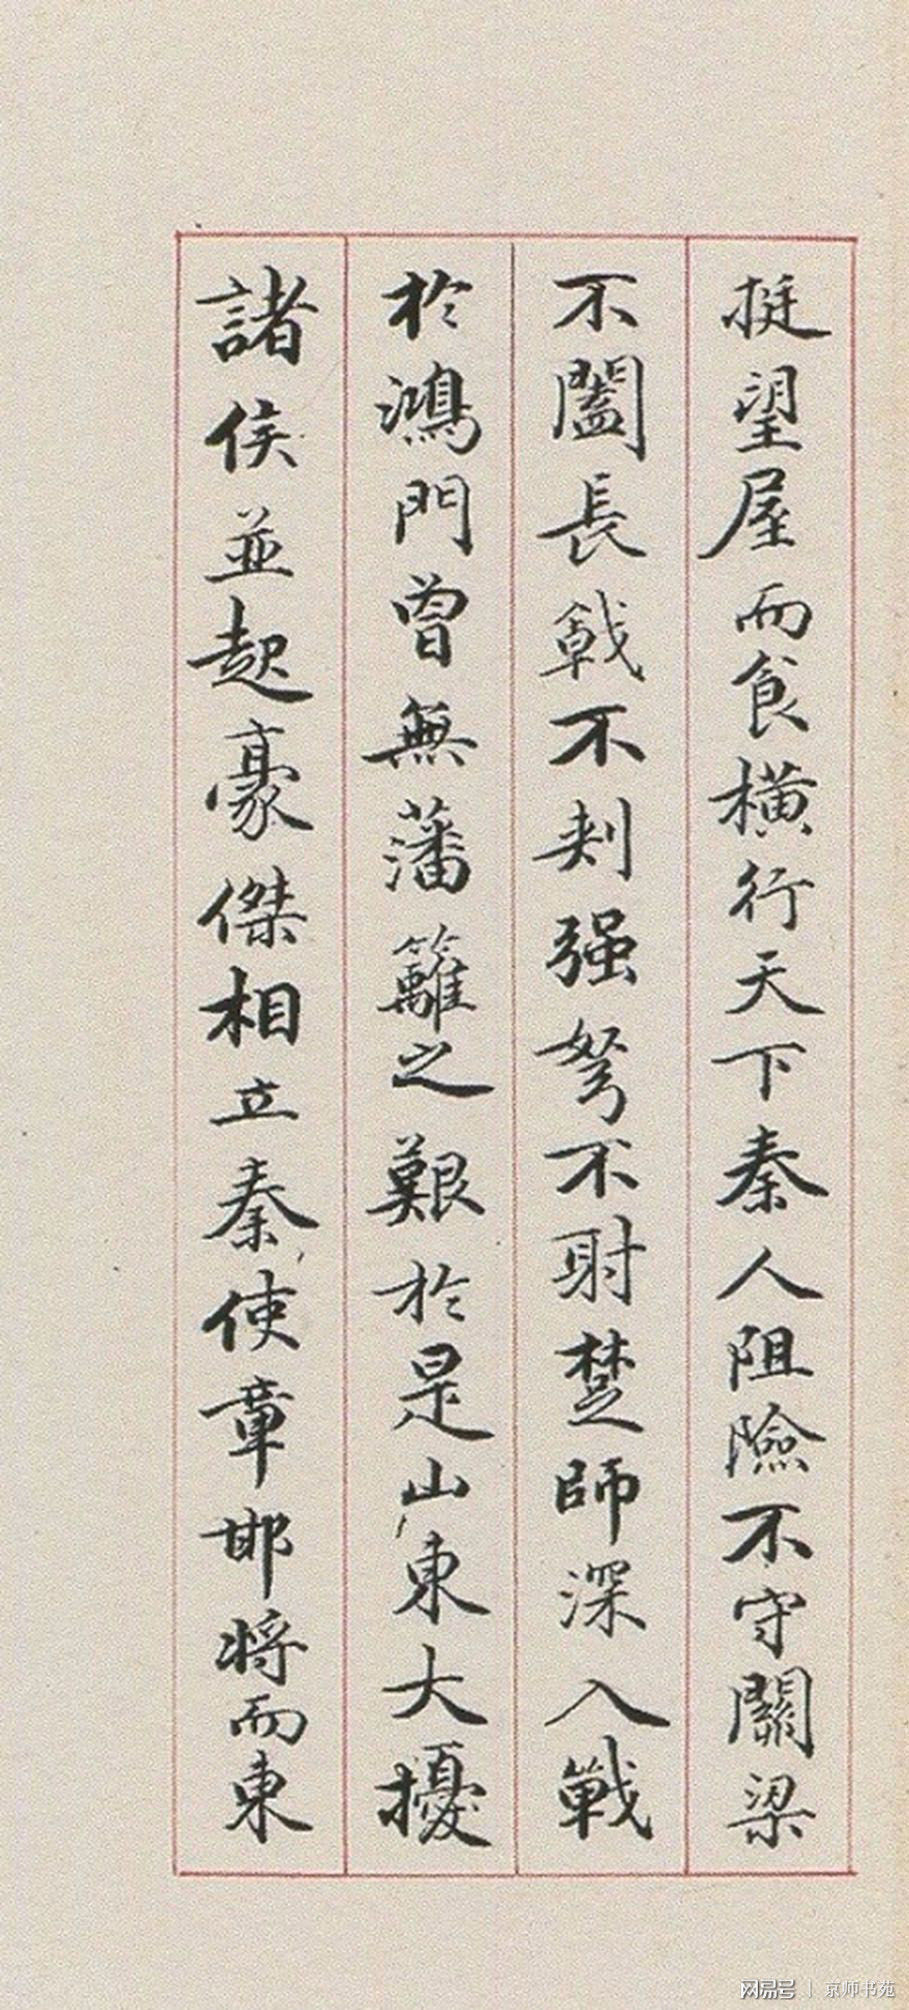 挺望屋而食橫行天下秦人阻險不守關梁
不闔長戟不刺强弩不射楚師深入戰
於鴻門曾無藩籬之艱於是山東大擾
諸侯並起豪傑相立秦使章邯将而東
网易号 | 京师书苑